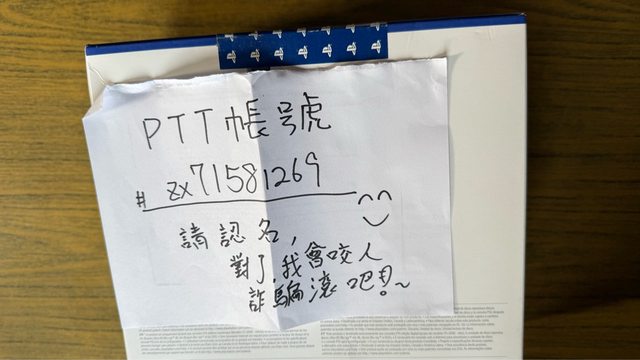 PTT帳号虎
# zx71581269
請認名,
對了,我會咬人
詐騙滾吧!~